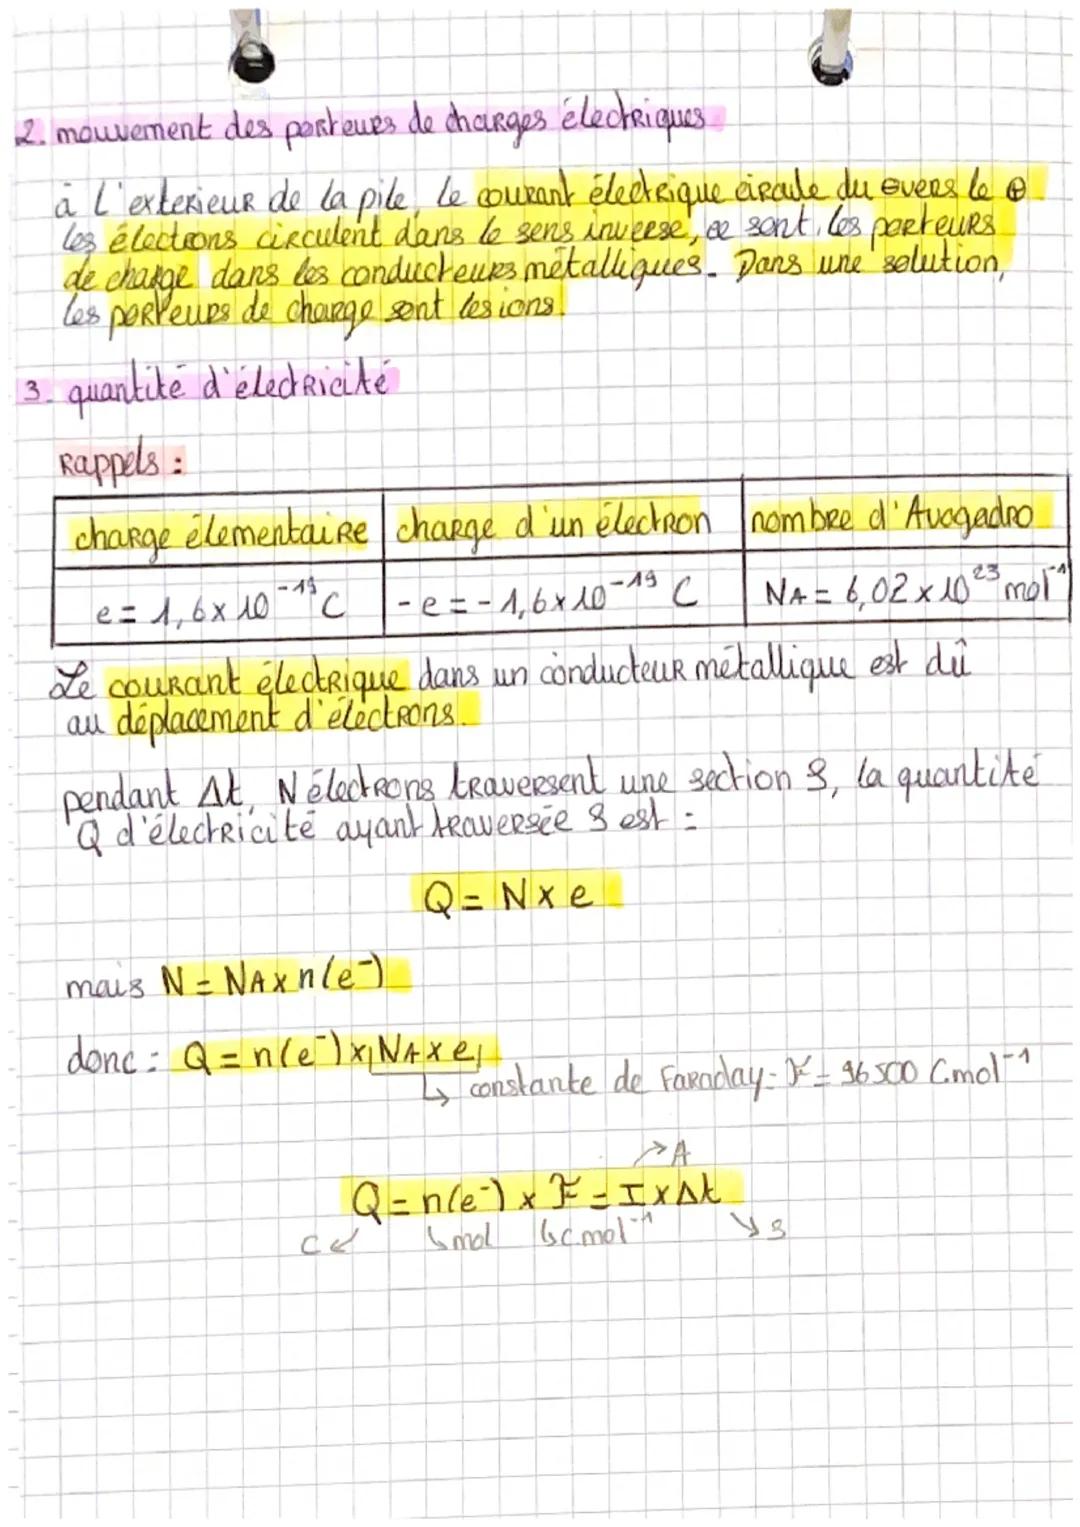 2. mouvement des porteurs de charges électriques
à l'exterieur de la pile, le courant électrique circule du ⊖ vers le ⊕
les électrons circulent dans le sens inverse, ce sont les porteurs
de charge dans les conducteurs métalliques. Dans une solution,
les porteurs de charge sont les ions.
3. quantité d'électricité
Rappels :
charge élementaire | charge d'un électron | nombre d'Avogadro
e = 1,6 x 10⁻¹⁹ C | - e = - 1,6 x 10⁻¹⁹ C | NA = 6,02 x 10²³ mol⁻¹
Le courant électrique dans un conducteur métallique est dû
au déplacement d'électrons.
pendant Δt, N électrons traversent une section S, la quantité
Q d'électricité ayant traversée S est :
Q = N x e
mais N = NA x n(e⁻)
donc : Q = n(e⁻) x NA x e
↳ constante de Faraday = F = 96 500 C.mol⁻¹
→ A
Q = n(e⁻) x F = I x Δt
C ↙ ↳ mol ↳ C.mol⁻¹ ↘ s